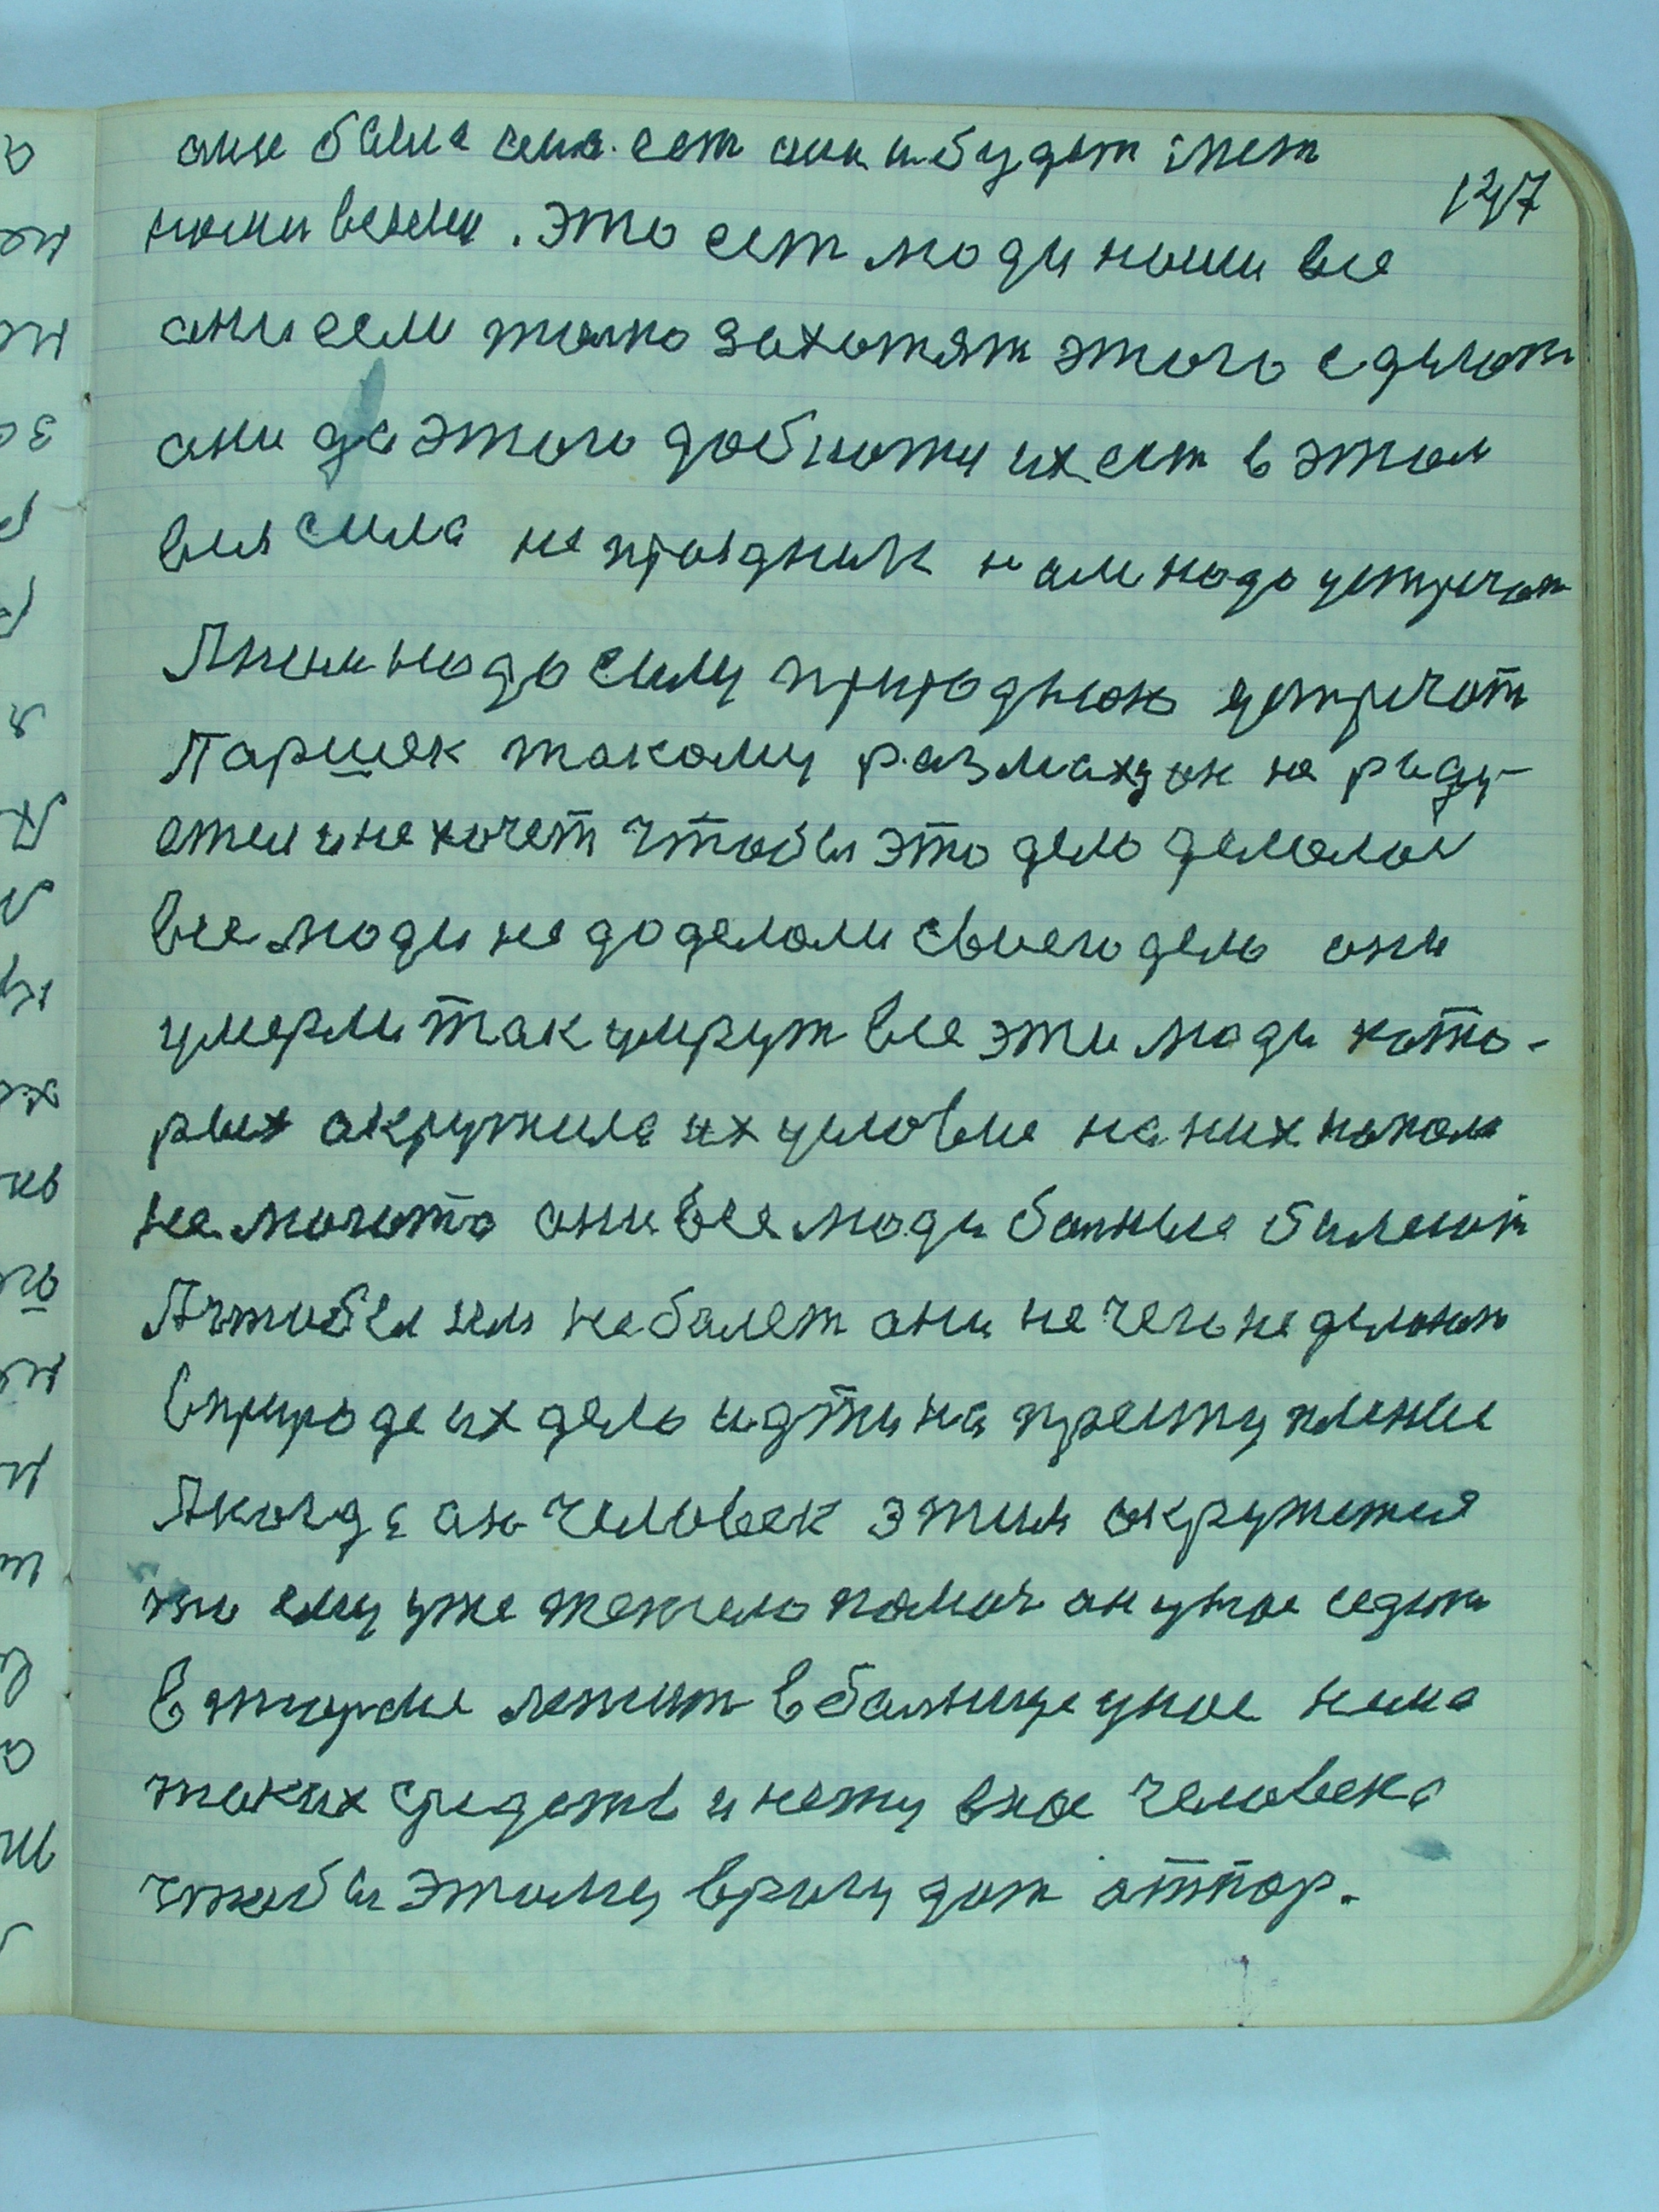 127
ани были сила. ест ани и будут с тем
ними вечны. это ест люди наши все
ани если толко захотят этого сделат
ани до этого добютця их ест в этом
вся сила не праздник нам надо устречат
А нам надо силу природную устречат
Паршек такому размаху он не раду-
ется и не хочет чтобы это дело делалос
все люди не доделали своего дела они
умерли так умрут все эти люди кото-
рых акружила их условие на них напала
не могота они все люди болные балеют
А чтобы им не балет они нечего не делают
в природе их дело идти на преступление
А когда он человек этим окружится
то ему уже тежело помоч он у нас седит
в тюрме лежит в болнице у нас нема
таких средств и нету в нас человека
чтобы этому врагу дат атпор.